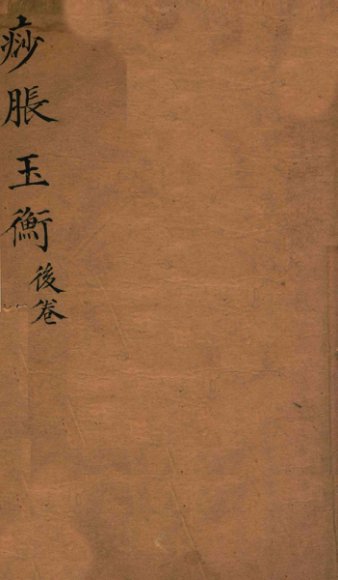 痧脹玉衡後卷